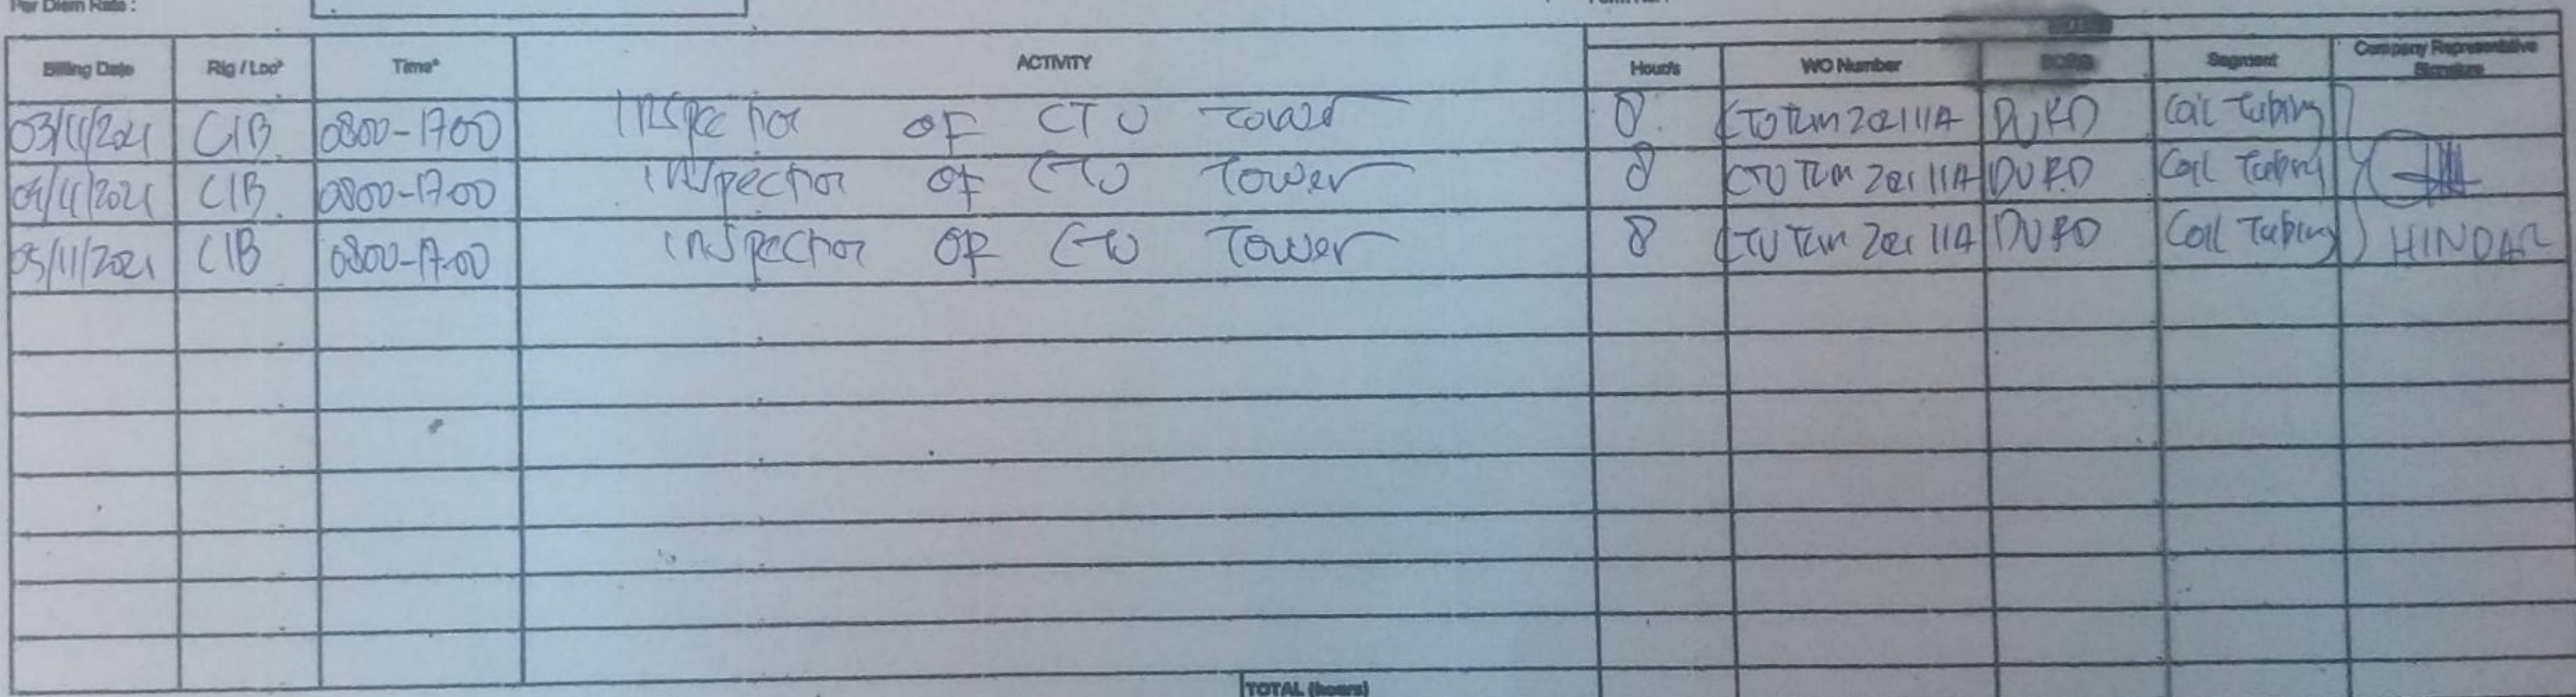 Per Diem Rate :
Billing Date Rig / Loc Time ACTIVITY Hour/s WO Number Segment Company Representative Signature
03/11/2021 CIB 0800-1700 Inspection OF CTU Tower 8 CTU TLM 2021 11A DURD Coil Tubing
04/11/2021 CIB 0800-1700 Inspection OF CTU Tower 8 CTU TLM 2021 11A DURD Coil Tubing
05/11/2021 CIB 0800-1700 Inspection OF CTU Tower 8 CTU TLM 2021 11A DURD Coil Tubing HINDAR
TOTAL (hours)